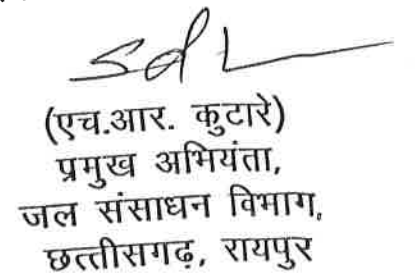 Sd/-
(एच.आर. कुटारे)
प्रमुख अभियंता,
जल संसाधन विभाग,
छत्तीसगढ़, रायपुर